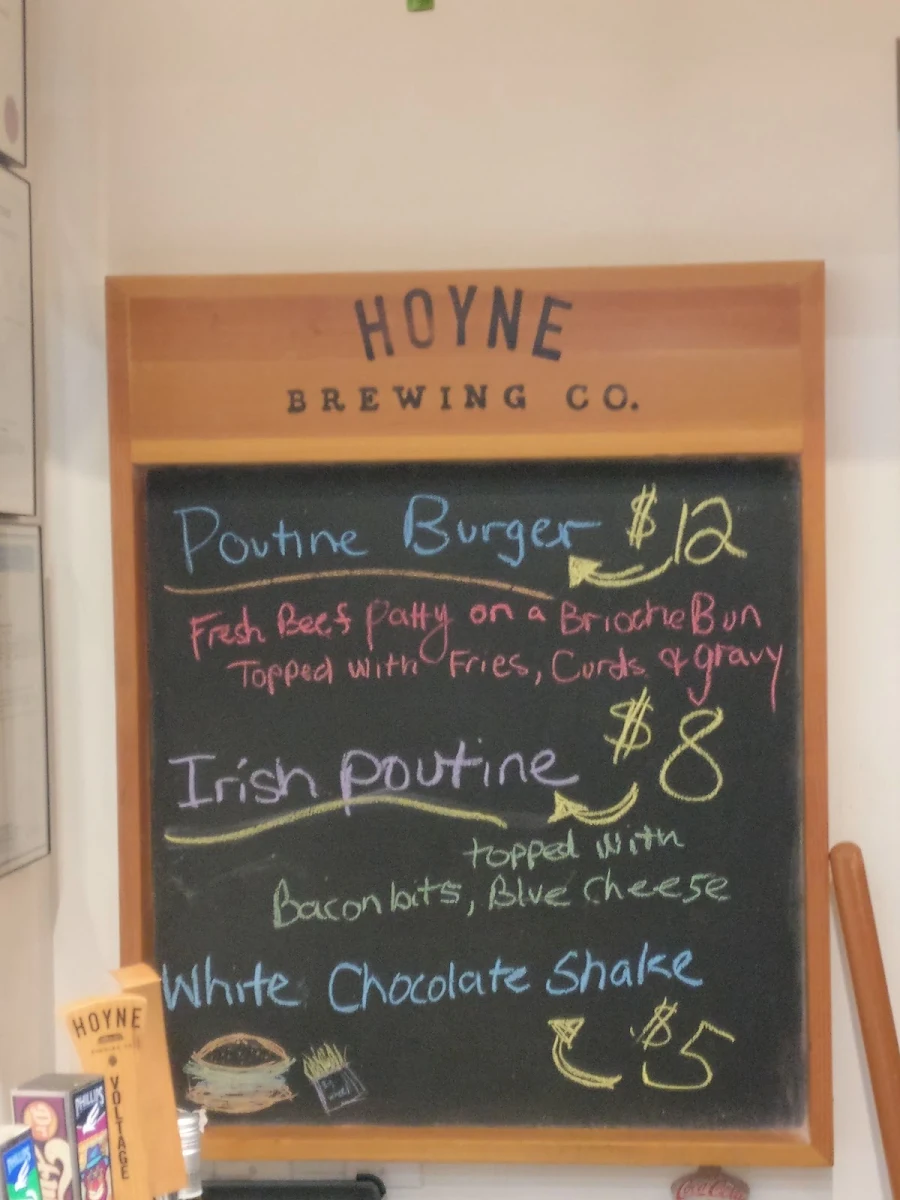 HOYNE
BREWING CO.
Poutine Burger $12
Fresh Beef patty on a Brioche Bun
Topped with Fries, Curds & gravy
Irish poutine $8
topped with
Bacon bits, Blue cheese
White Chocolate Shake
$5
HOYNE
VOLTAGE
PHILLIPS
PHILLIPS
Coca-Cola